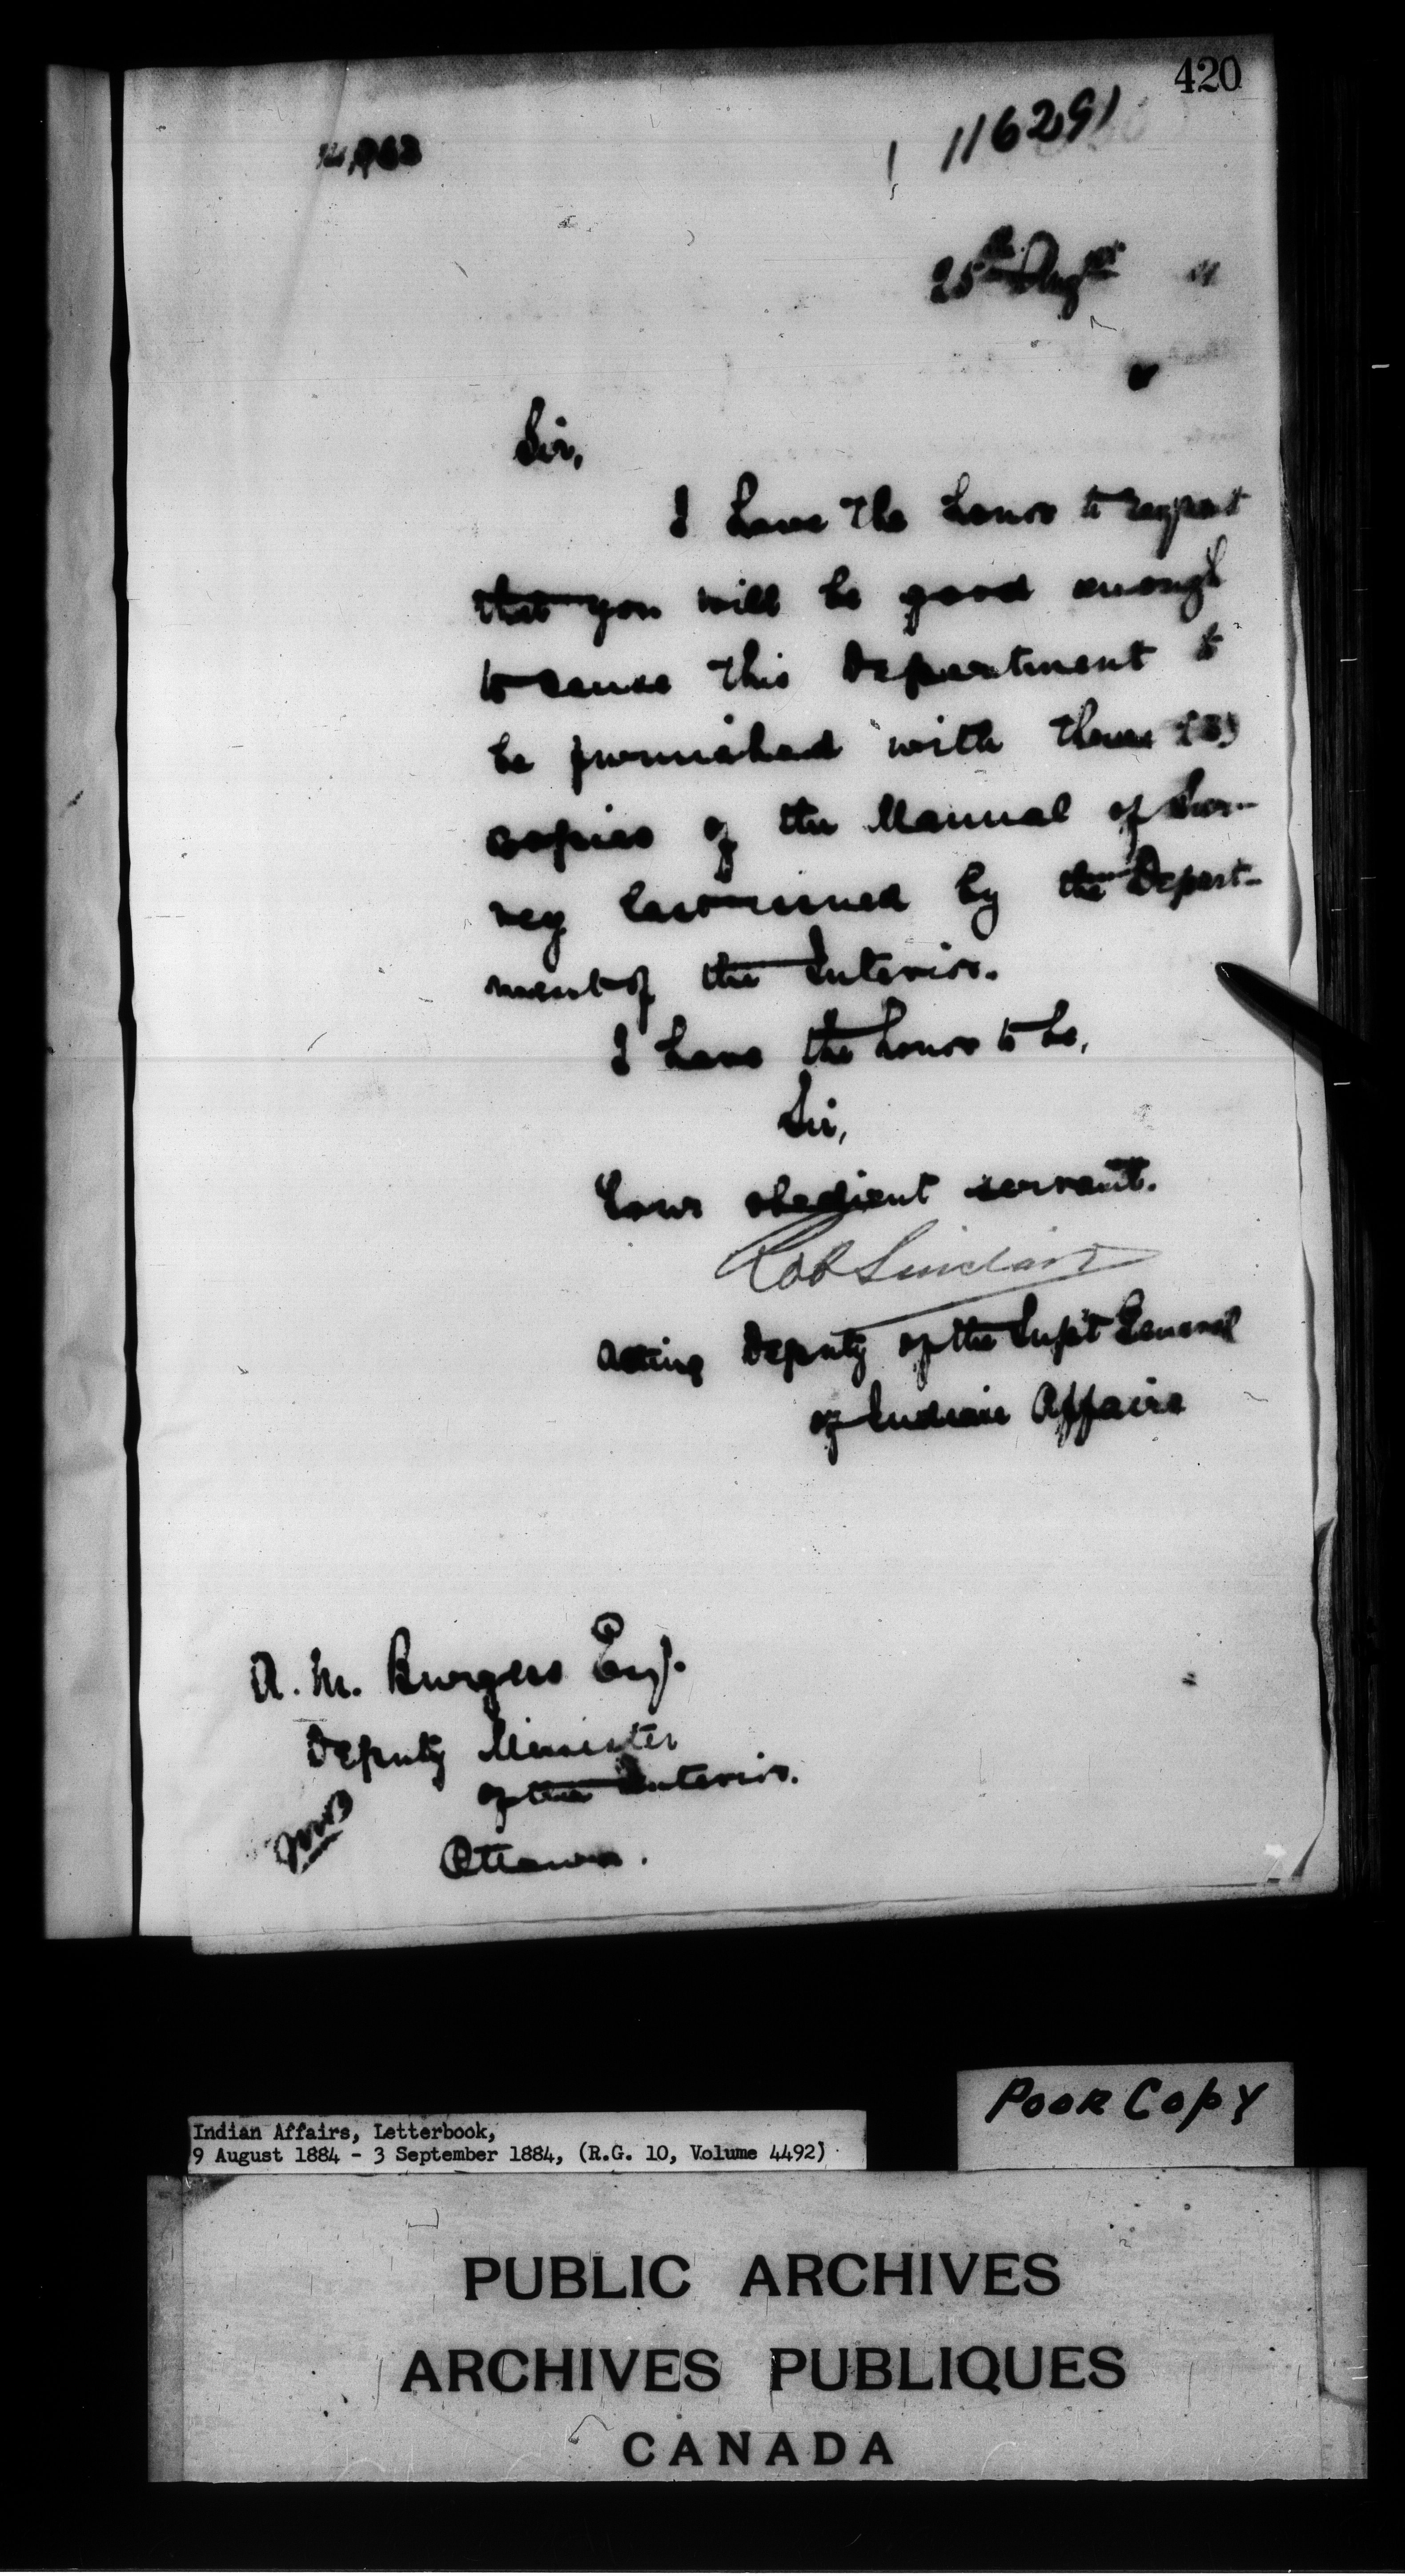 420
116291
25th Augst
Sir,
I have the honor to request
that you will be good enough
to cause this Department to
be furnished with three (3)
copies of the Manual of Sur-
vey last issued by the Depart-
ment of the Interior.
I have the honor to be,
Sir,
Your obedient servant.
Rob Sinclair
Acting Deputy of the Supt General
of Indian Affairs
A. M. Burgess Esq.
Deputy Minister
of the Interior.
Ottawa.
POOR COPY
Indian Affairs, Letterbook,
9 August 1884 - 3 September 1884, (R.G. 10, Volume 4492)
PUBLIC ARCHIVES
ARCHIVES PUBLIQUES
CANADA